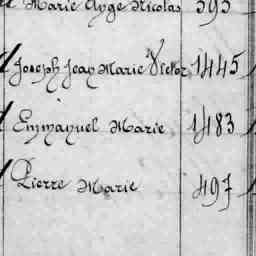 Marie Ange Nicolas 595
Joseph Jean Marie Victor 1445
Emmanuel Marie 1483
Pierre Marie 497